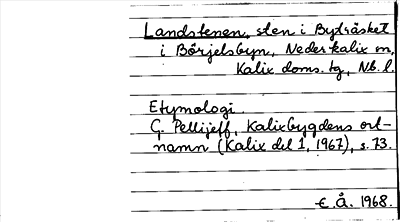 Landstenen, sten i Byträsket
i Börjelsbyn, Nederkalix sn,
Kalix doms. tg, Nb. l.
Etymologi.
G. Pellijeff, Kalixbygdens ort-
namn (Kalix del 1, 1967), s. 73.
E. Å. 1968.